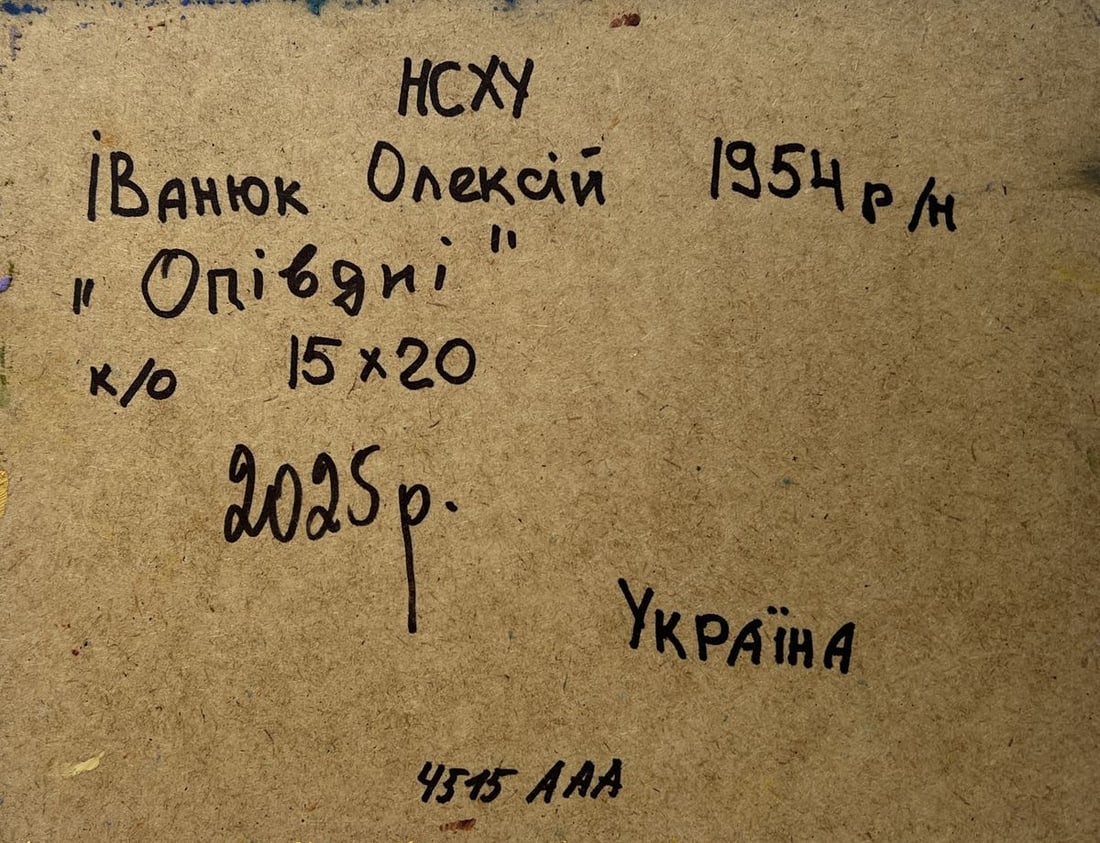 НСХУ
Іванюк Олексій 1954 р/н
"Опівдні"
к/о 15х20
2025р.
Україна
4515 ААА